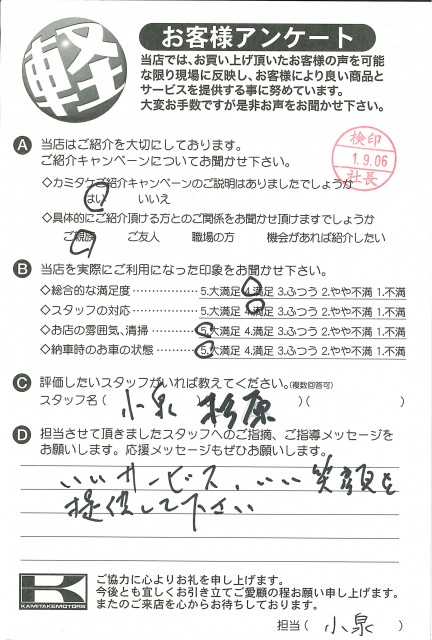 軽
お客様アンケート
当店では、お買い上げ頂いたお客様の声を可能
な限り現場に反映し、お客様により良い商品と
サービスを提供する事に努めています。
大変お手数ですが是非お声をお聞かせ下さい。
検印
1.9.06
社長
A 当店はご紹介を大切にしております。
ご紹介キャンペーンについてお聞かせ下さい。
◇カミタケご紹介キャンペーンのご説明はありましたでしょうか
はい いいえ
◇具体的にご紹介頂ける方とのご関係をお聞かせ頂けますでしょうか
ご親族 ご友人 職場の方 機会があれば紹介したい
B 当店を実際にご利用になった印象をお聞かせ下さい。
◇総合的な満足度……………5.大満足 4.満足 3.ふつう 2.やや不満 1.不満
◇スタッフの対応……………5.大満足 4.満足 3.ふつう 2.やや不満 1.不満
◇お店の雰囲気、清掃………5.大満足 4.満足 3.ふつう 2.やや不満 1.不満
◇納車時のお車の状態………5.大満足 4.満足 3.ふつう 2.やや不満 1.不満
C 評価したいスタッフがいれば教えてください。(複数回答可)
スタッフ名( 小泉 杉原 )( )
D 担当させて頂きましたスタッフへのご指摘、ご指導メッセージを
お願いします。応援メッセージもぜひお願いします。
いいサービス、いい笑顔を
提供して下さい
K
KAMITAKEMOTORS
ご協力に心よりお礼を申し上げます。
今後とも宜しくお引き立てご愛顧の程お願い申し上げます。
またのご来店を心からお待ちしております。
担当( 小泉 )